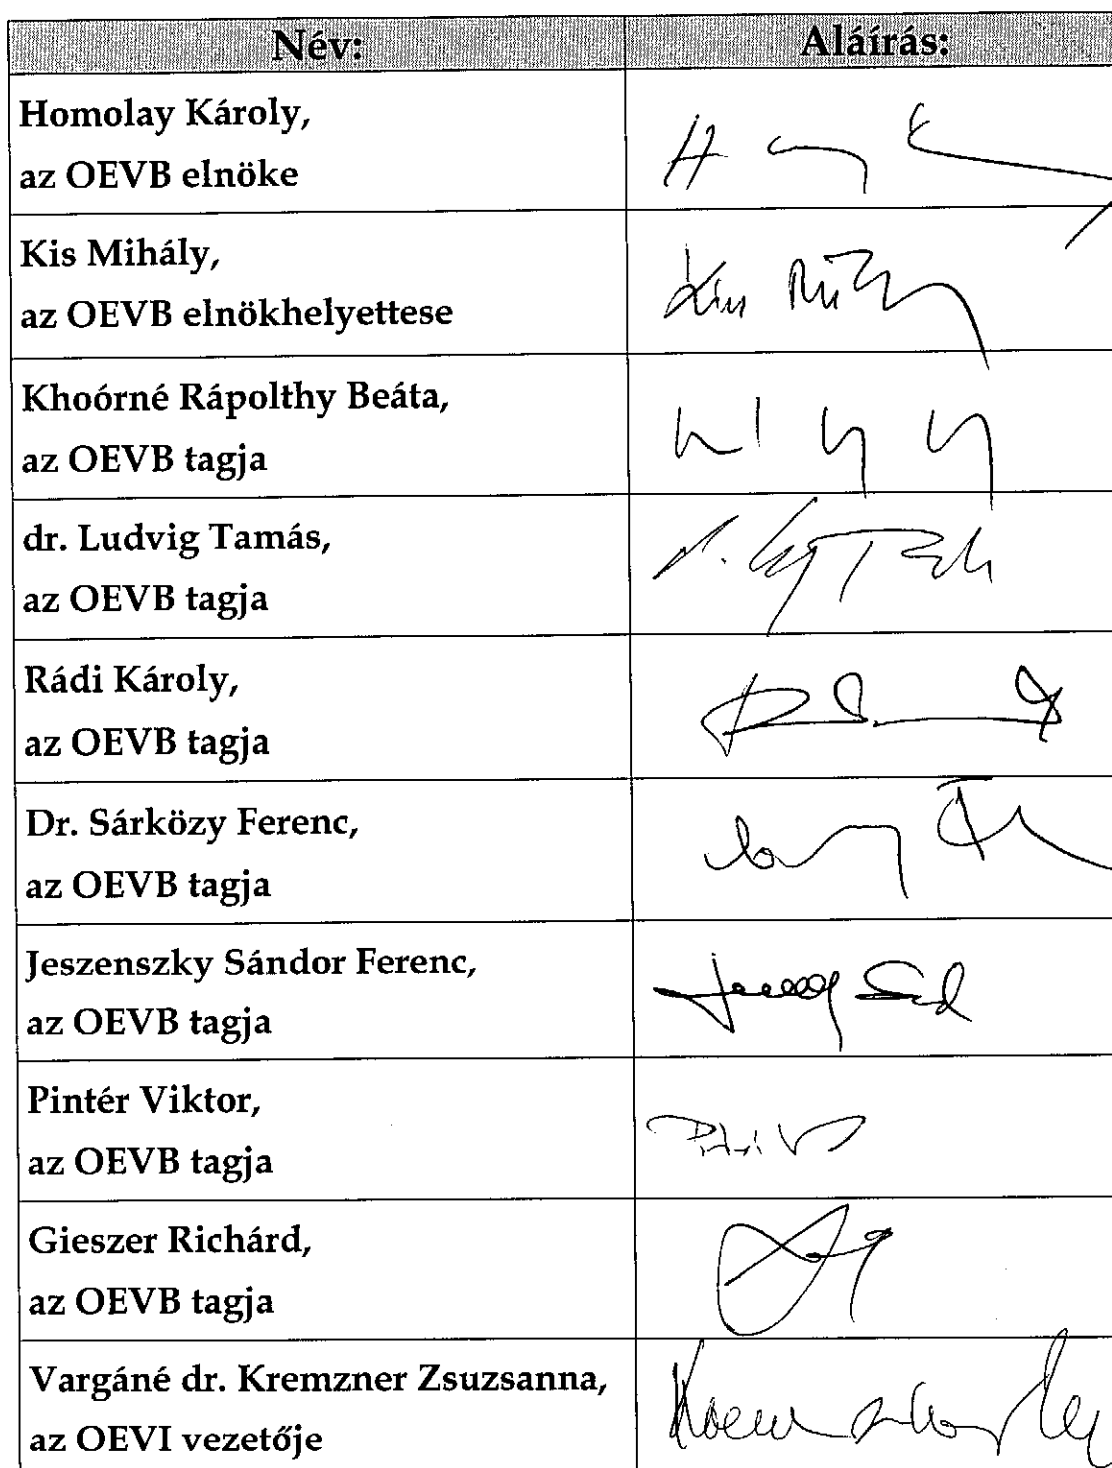 Név: Aláírás:
Homolay Károly,
az OEVB elnöke
Kis Mihály,
az OEVB elnökhelyettese
Khoórné Rápolthy Beáta,
az OEVB tagja
dr. Ludvig Tamás,
az OEVB tagja
Rádi Károly,
az OEVB tagja
Dr. Sárközy Ferenc,
az OEVB tagja
Jeszenszky Sándor Ferenc,
az OEVB tagja
Pintér Viktor,
az OEVB tagja
Gieszer Richárd,
az OEVB tagja
Vargáné dr. Kremzner Zsuzsanna,
az OEVI vezetője